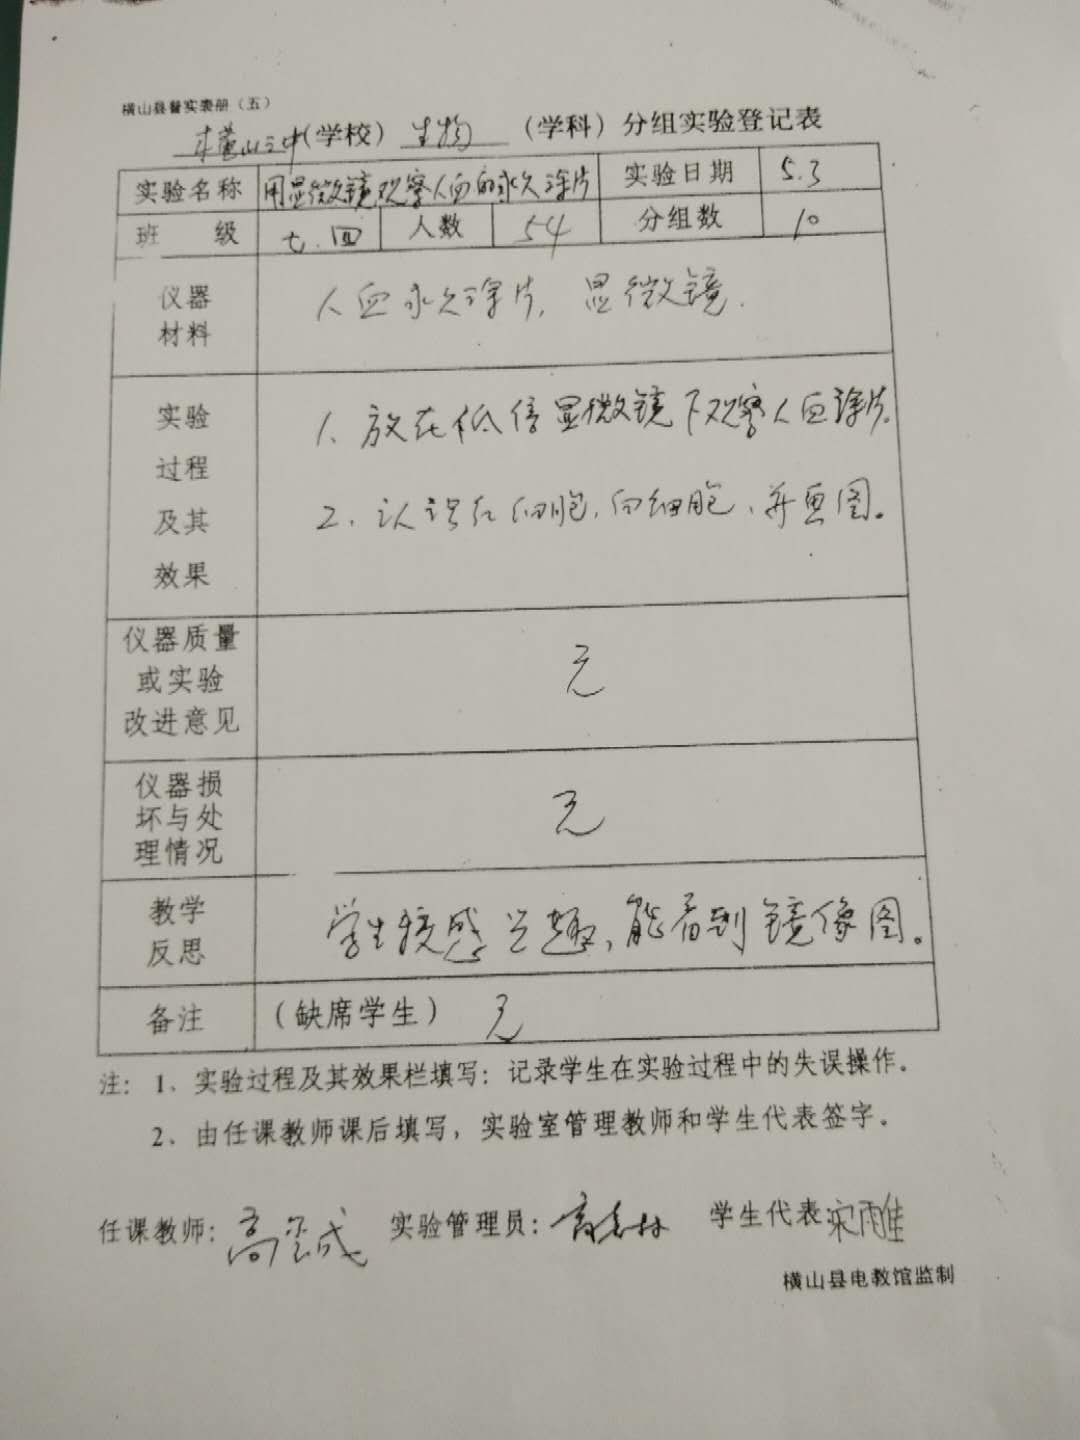 横山县督实表册（五）
横山三中(学校） 生物 （学科）分组实验登记表
实验名称 用显微镜观察人血的永久涂片 实验日期 5.3
班 级 七.四 人数 54 分组数 10
仪器 材料 人血永久涂片, 显微镜.
实验 过程 及其 效果
1、放在低倍显微镜下观察人血涂片.
2、认识红细胞、白细胞、并画图。
仪器质量 或实验 改进意见 无
仪器损 坏与处 理情况 无
教学 反思 学生较感兴趣,能看到镜像图。
备注 （缺席学生） 无
注： 1、实验过程及其效果栏填写：记录学生在实验过程中的失误操作。
2、由任课教师课后填写，实验室管理教师和学生代表签字。
任课教师: 高 成 实验管理员: 学生代表 宋雨佳
横山县电教馆监制